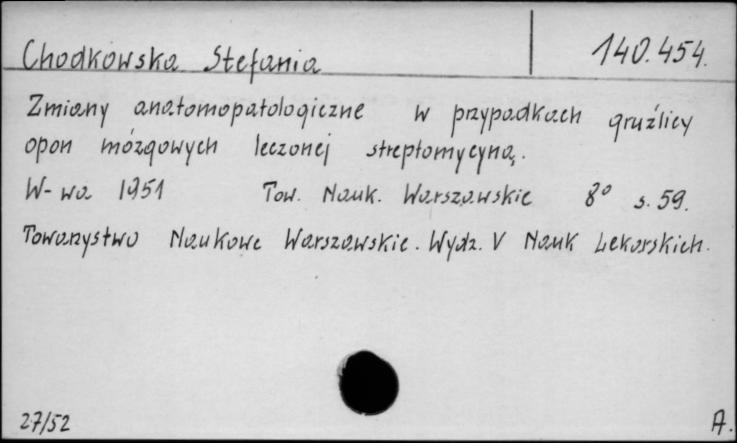 Chodkowska Stefania 140.454.
Zmiany anatomopatologiczne w przypadkach gruźlicy
opon mózgowych leczonej streptomycyną.
W-wa 1951 Tow. Nauk. Warszawskie 8° s. 59.
Towarzystwo Naukowe Warszawskie. Wydz. V Nauk Lekarskich.
27/52 A.